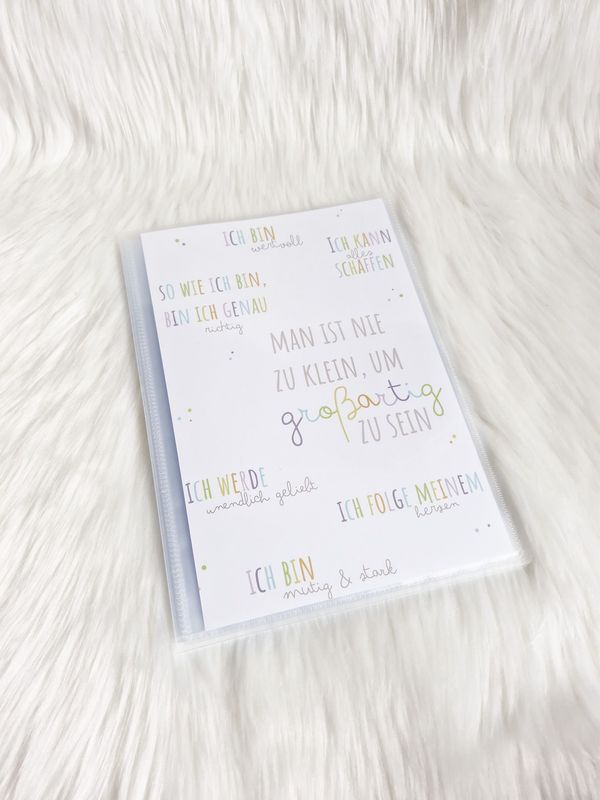 ICH BIN
wertvoll
ICH KANN
alles
SCHAFFEN
SO WIE ICH BIN,
BIN ICH GENAU
richtig
MAN IST NIE
ZU KLEIN, UM
großartig
ZU SEIN
ICH WERDE
unendlich geliebt
ICH FOLGE MEINEM
herzen
ICH BIN
mutig & stark